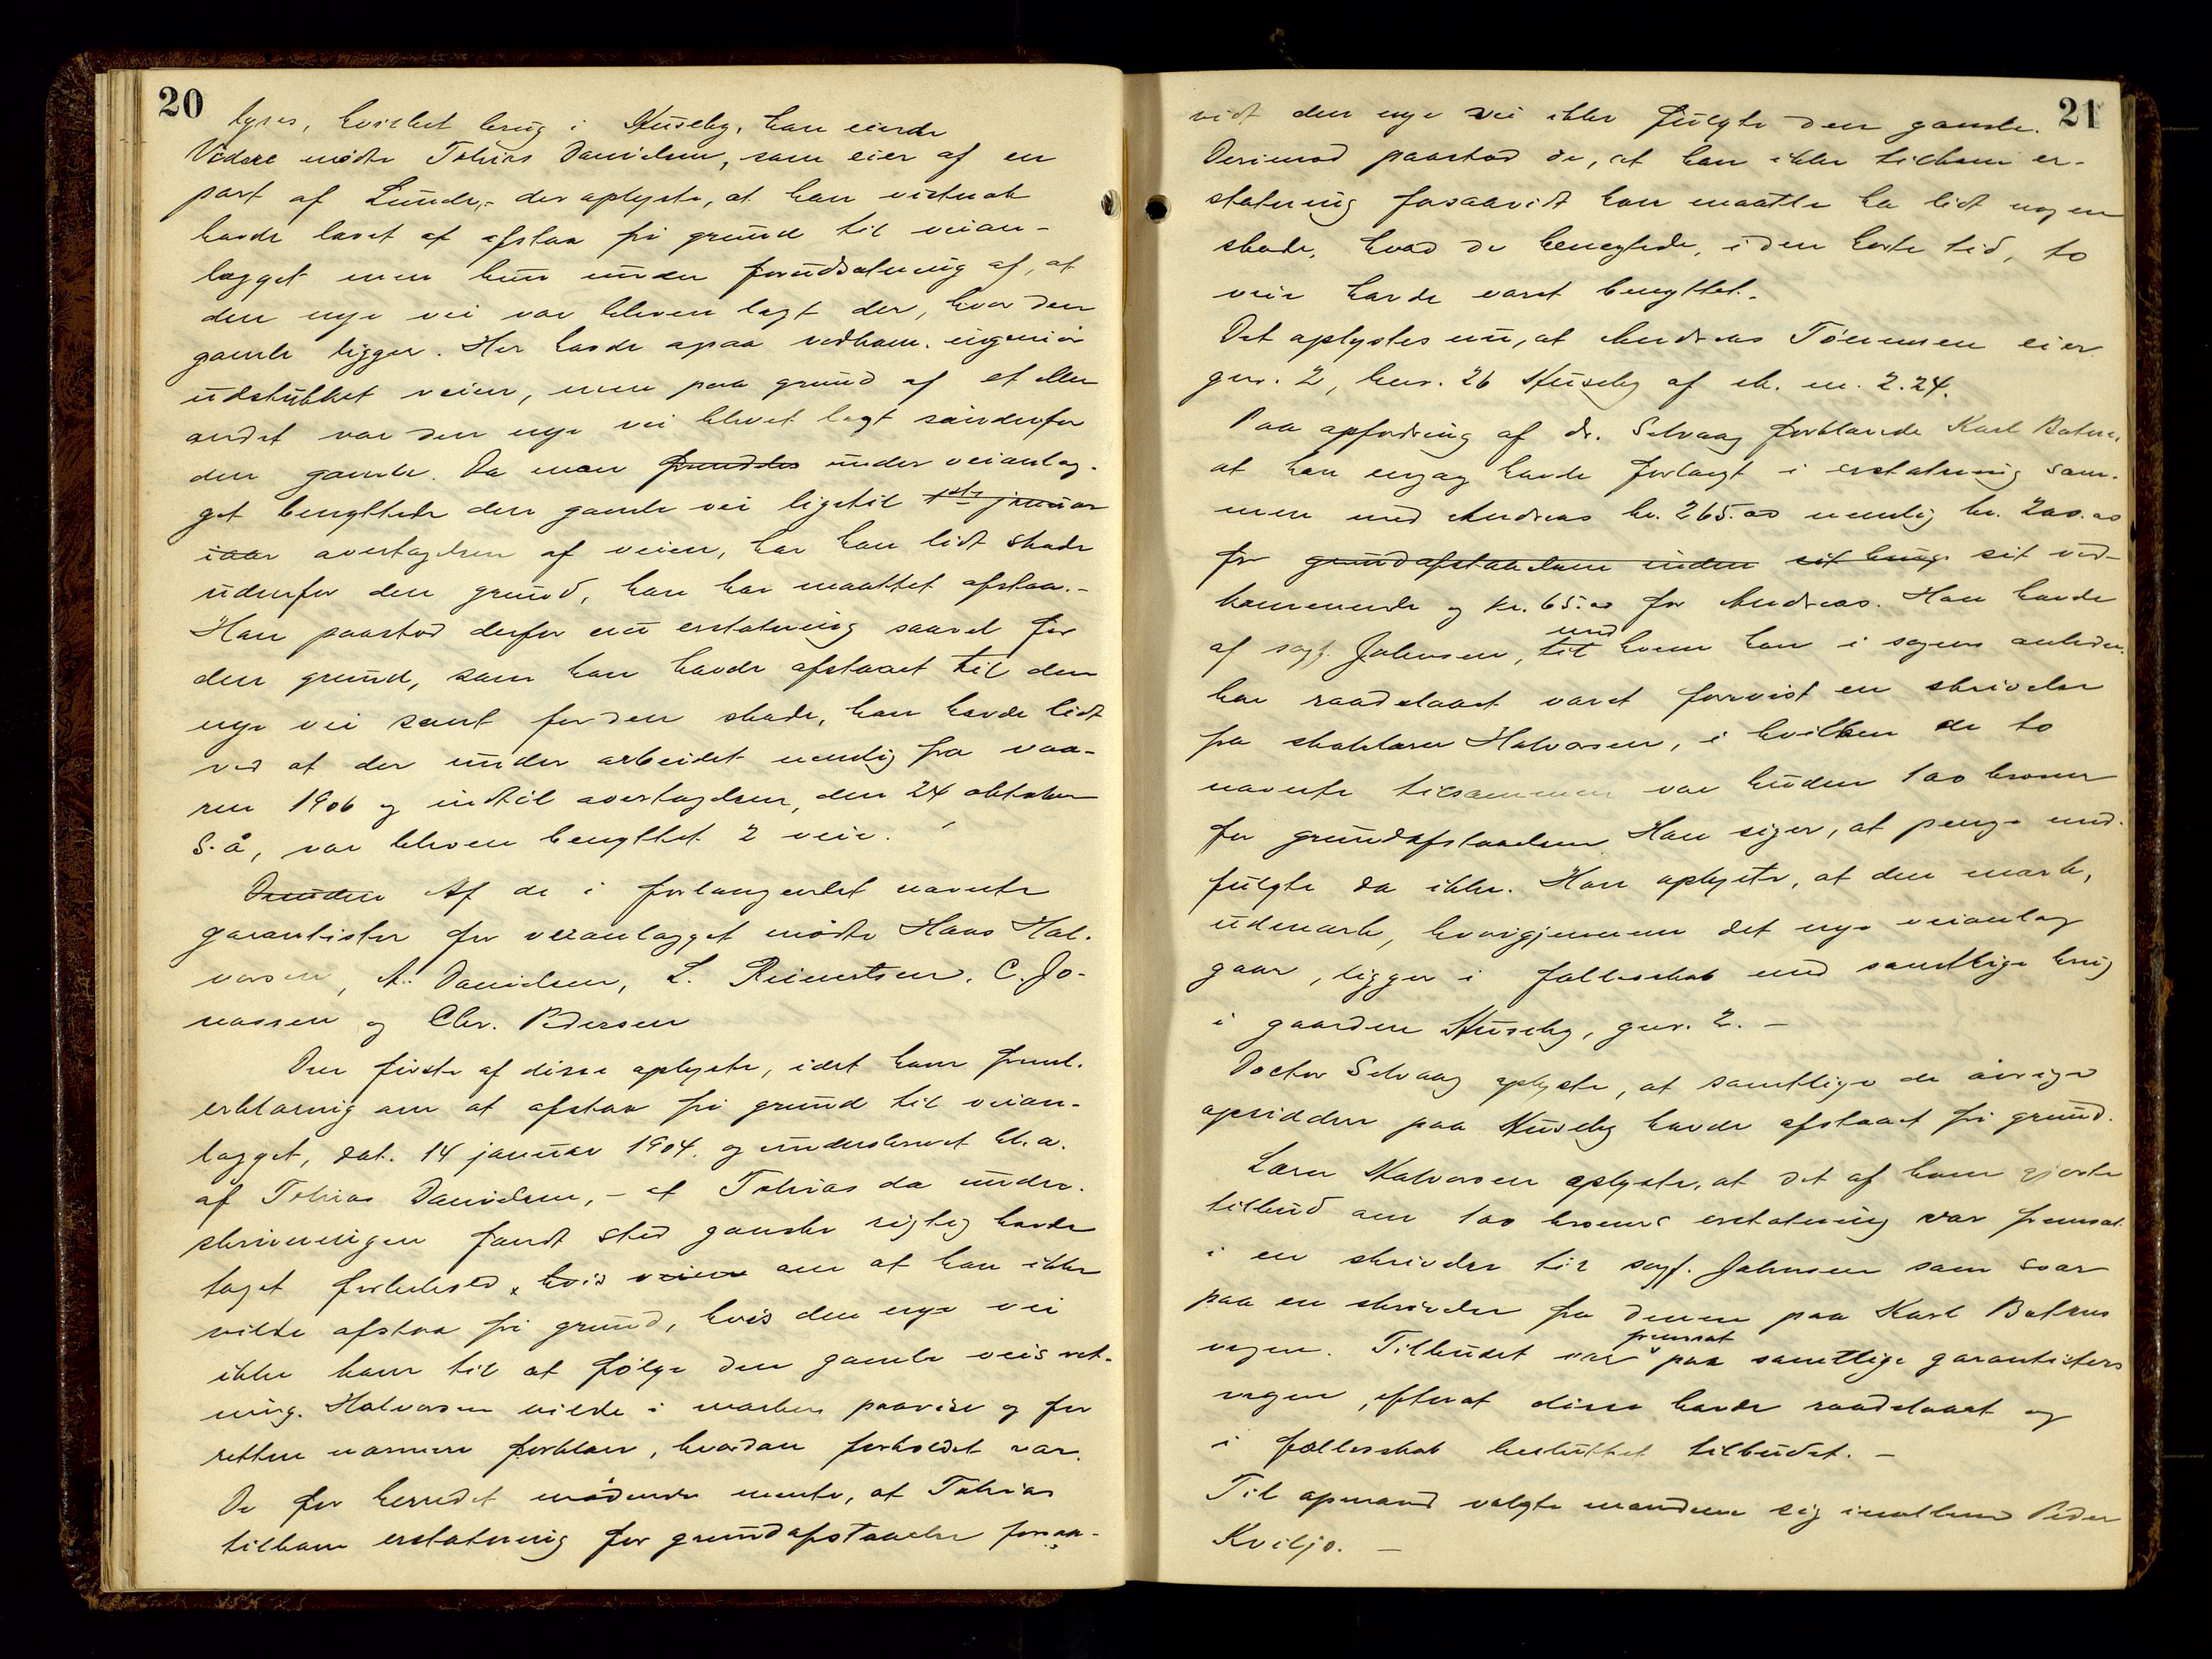 20
lyses, hvilket brug i Huseby, han eiede
Videre mødte Tobias Danielsen, som eier af en
part af Lunde, der oplyste, at han vistnok
havde lovet at afstaa fri grund til veian-
lægget men kun under forudsætning af, at
den nye vei var bleven lagt der, hvor den
gamle ligger. Her havde ogsaa vedkom. ingeniør
udstukket veien, men paa grund af et eller
andet var den nye vei blevet lagt søndenfor
den gamle. Da man fremdeles under veianlæg-
get benyttede den gamle vei ligetil 1ste januar
iaar overtagelsen af veien, har han lidt skade
udenfor den grund, han har maattet afstaa.-
Han paastod derfor nu erstatning saavel for
den grund, som han havde afstaaet til den
nye vei samt for den skade, han havde lidt
ved at der under arbeidet nemlig fra vaa-
ren 1906 og indtil overtagelsen, den 24 oktober
s. å, var bleven benyttet 2 veie.
Desuden Af de i forlangendet nævnte
garantister for veranlægget mødte Hans Hal-
vorsen, A. Danielsen, L. Reinertsen, C. Jo-
nassen og Chr. Pedersen
Den første af disse oplyste, idet han freml.
erklæring om at afstaa fri grund til veian-
lægget, dat. 14 januar 1904. og underskrevet bl. a.
af Tobias Danielsen, - at Tobias da under-
skrivningen fandt sted ganske rigtig havde
taget forbehold, hvis veien om at han ikke
vilde afstaa fri grund, hvis den nye vei
ikke kom til at følge den gamle veis ret-
ning. Halvorsen vilde i marken paavise og for
retten nærmere forklare, hvordan forholdet var.
De for herredet mødende mente, at Tobias
tilkom erstatning for grundafstaaelse forsaa-
21
vidt den nye vei ikke fulgte den gamle.
Derimod paastod de, at han ikke tilkom er-
statning forsaavidt han maatte ha lidt nogen
skade, hvad de benegtede, i den korte tid, to
veie havde været benyttet.
Det oplystes nu, at Andreas Tønnesen eier
gnr. 2, bnr. 26 Huseby af sk. m. 2.24.
Paa opfordring af dr. Selvaag forklarede Karl
at han engang havde forlangt i erstatning sam-
men med Andreas kr. 265.00 nemlig kr. 200.00
for grundafstaaelsen inden sit brug sit ved-
kommende og kr. 65.00 for Andreas. Han havde
af sagf. Johnsen, til med hvem han i sagens anleden.
har raadslaaet været forevist en skrivelse
fra skolelærer Halvorsen, i hvilken de to
nævnte tilsammen var buden 100 kroner
for grundafstaaelsen. Han siger, at penge med-
fulgte da ikke. Han oplyste, at den mark,
udmark, hvorigjennem det nye veianlæg
gaar, ligger i fællesskab med samtlige brug
i gaarden Huseby, gnr. 2. -
Doctor Selvaag oplyste, at samtlige de øvrige
opsiddere paa Huseby havde afstaaet fri grund.
Lærer Halvorsen oplyste, at det af ham gjorte
tilbud om 100 kroners erstatning var fremsat
i en skrivelse til sagf. Johnsen som svar
paa en skrivelse fra denne paa Karl
vegne. Tilbudet var fremsat paa samtlige garantisters
vegne, efterat disse havde raadslaaet og
i fællesskab besluttet tilbudet. -
Til opmand valgte mændene sig imellem Peder
Kviljo. -